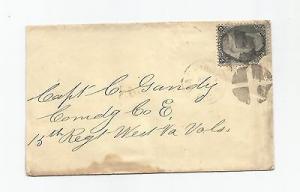 Capt C. Gandy
Comdg Co E,
15th Regt West Va Vols.